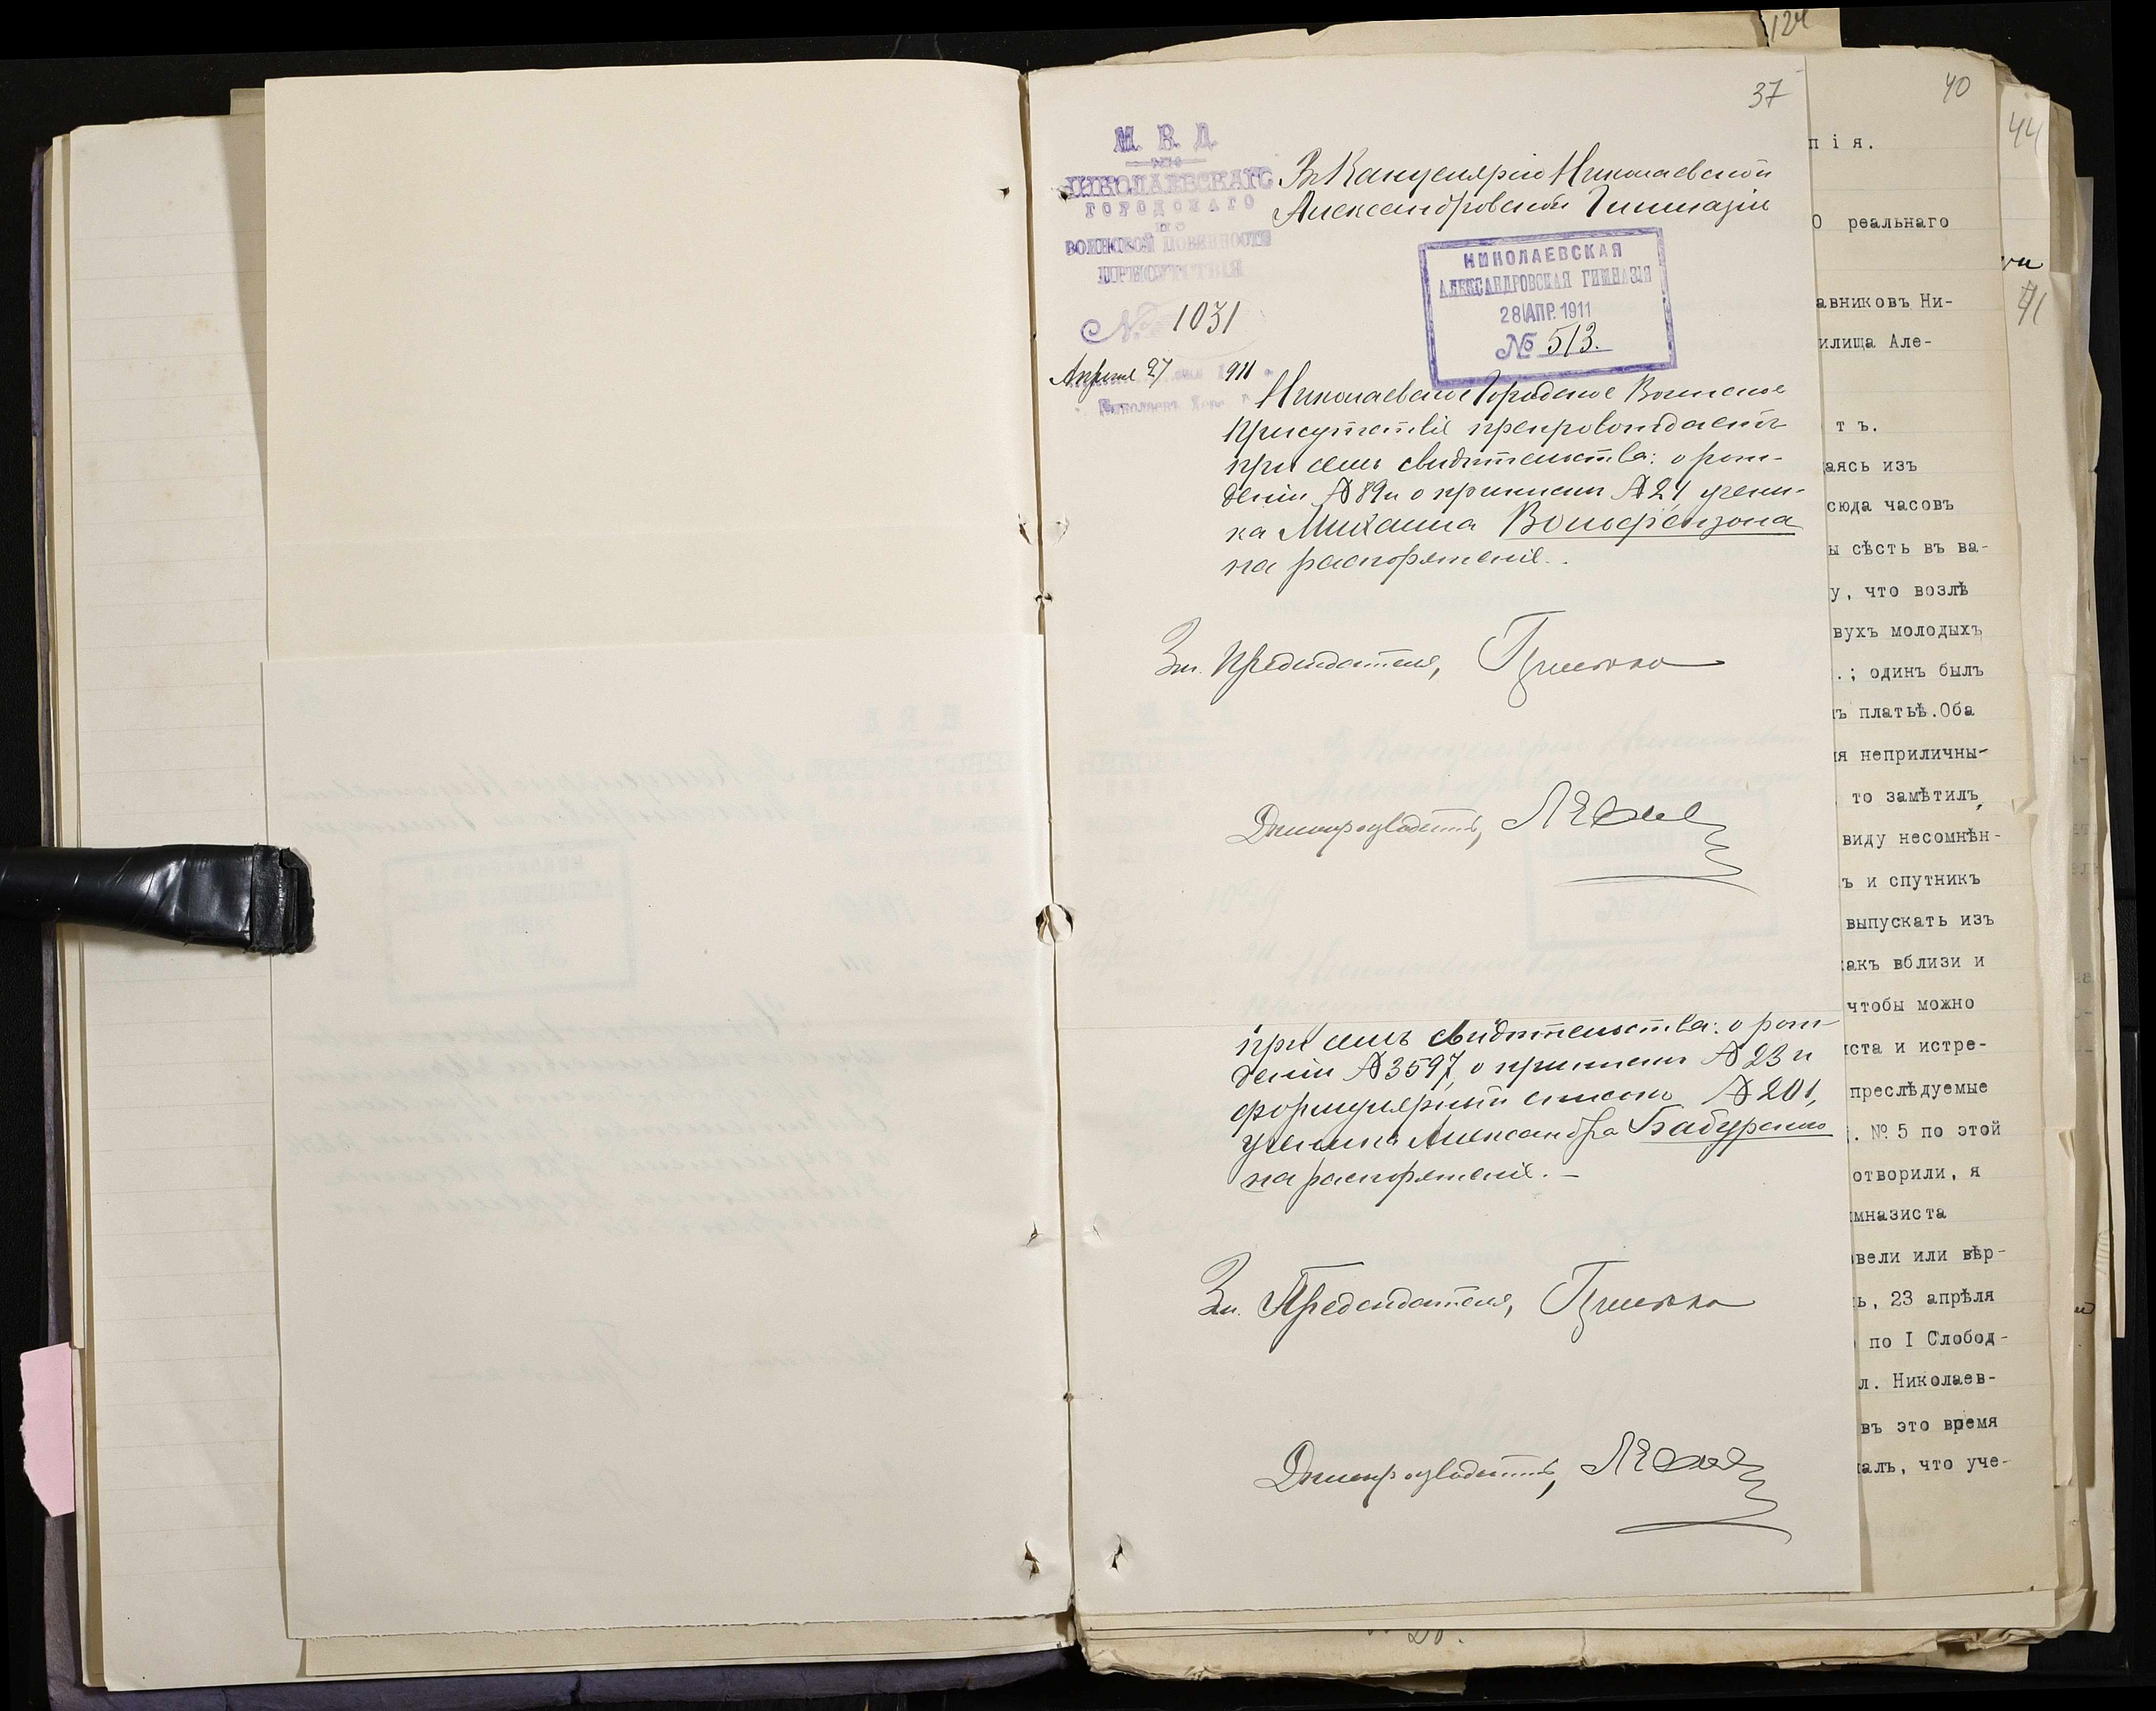 124
37
М. В. Д.
НИКОЛАЕВСКАГО
ГОРОДСКАГО
ПО
ВОИНСКОЙ ПОВИННОСТИ
ПРИСУТСТВІЯ
№ 1031
Апреля 27 1911 г.
Николаевъ Хер. г.
Въ Канцелярію Николаевской
Александровской Гимназіи
НИКОЛАЕВСКАЯ
АЛЕКСАНДРОВСКАЯ ГИМНАЗІЯ
28 АПР. 1911
№ 513.
Николаевское Городское Воинское
Присутствіе препровождаетъ
при семъ свидѣтельства: о рож-
деніи № 89 и о припискѣ № 24 учени-
ка Михаила Вольфензона
на распоряженіе.
За. Предсѣдателя,
Дѣлопроизводитель,
при семъ свидѣтельства: о рож-
деніи № 3597, о припискѣ № 23 и
формулярный списокъ № 201,
ученика Александра Бабурскаго
на распоряженіе. –
За. Предсѣдателя,
Дѣлопроизводитель,
40
пія.
О реальнаго
авниковъ Ни-
илища Але-
тъ.
аясь изъ
сюда часовъ
ы сѣсть въ ва-
у, что возлѣ
вухъ молодыхъ
.; одинъ былъ
ъ платьѣ.Оба
ія неприличны-
то замѣтилъ,
виду несомнѣн-
ъ и спутникъ
выпускать изъ
акъ вблизи и
чтобы можно
иста и истре-
преслѣдуемые
. № 5 по этой
отворили, я
имназиста
вели или вѣр-
ь, 23 апрѣля
по I Слобод-
л. Николаев-
въ это время
алъ, что уче-
44
41